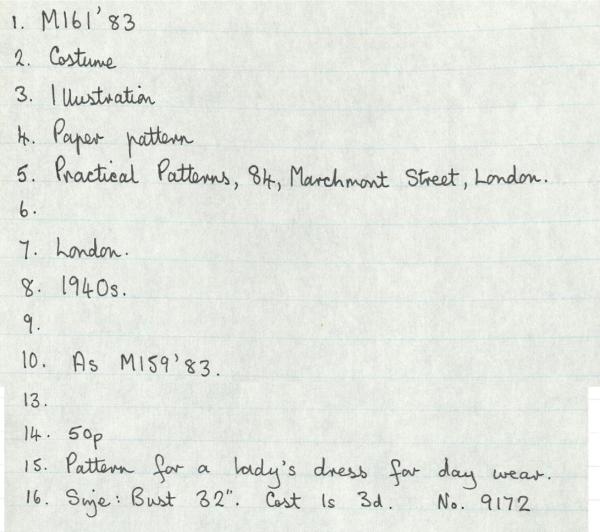 1. M161'83
2. Costume
3. Illustration
4. Paper pattern
5. Practical Patterns, 84, Marchmont Street, London.
6.
7. London.
8. 1940s.
9.
10. As M159'83.
13.
14. 50p
15. Pattern for a lady's dress for day wear.
16. Size: Bust 32". Cost 1s 3d. No. 9172